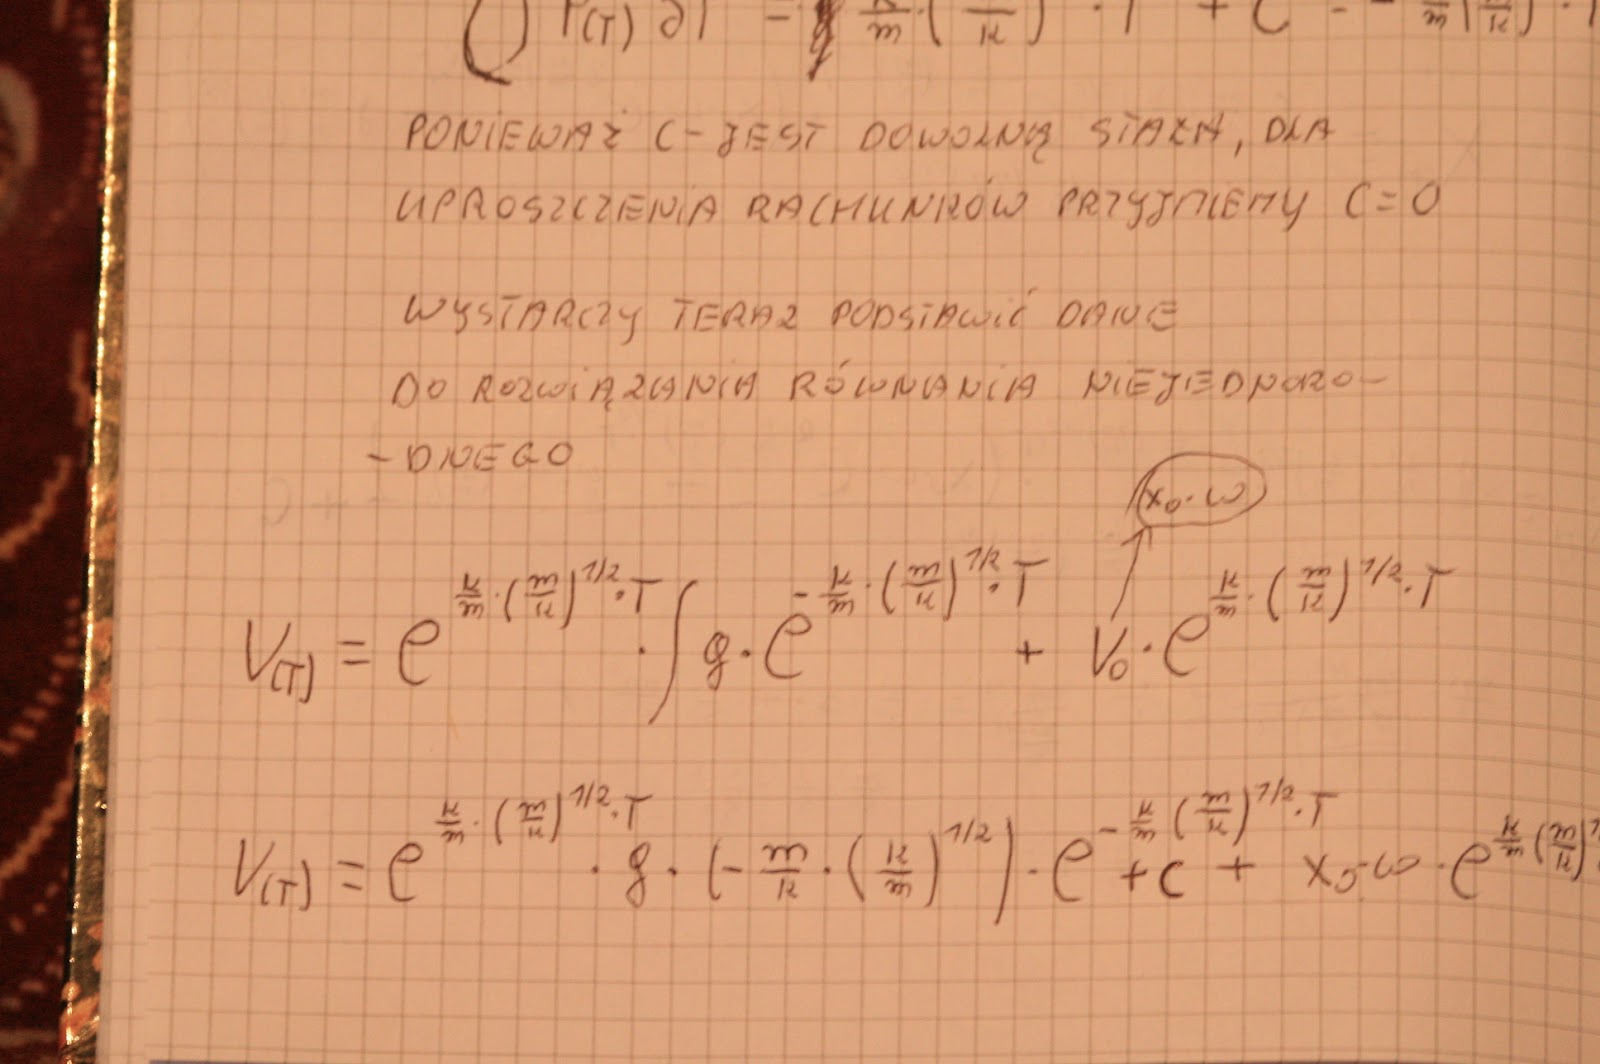 ∫ P(T) ∂T = k/m · (m/k) · T + C = - k/m (m/k) · T
PONIEWAŻ C - JEST DOWOLNĄ STAŁĄ, DLA
UPROSZCZENIA RACHUNKÓW PRZYJMIEMY C = 0
WYSTARCZY TERAZ PODSTAWIĆ DANE
DO ROZWIĄZANIA RÓWNANIA NIEJEDNORO-
- DNEGO
x₀ · ω
V(T) = e^(k/m · (m/k)^1/2 · T) · ∫ g · e^(- k/m · (m/k)^1/2 · T) + V₀ · e^(k/m · (m/k)^1/2 · T)
V(T) = e^(k/m · (m/k)^1/2 · T) · g · (- m/k · (k/m)^1/2) · e^(- k/m (m/k)^1/2 · T) + c + x₀ · ω · e^(k/m (m/k)^1